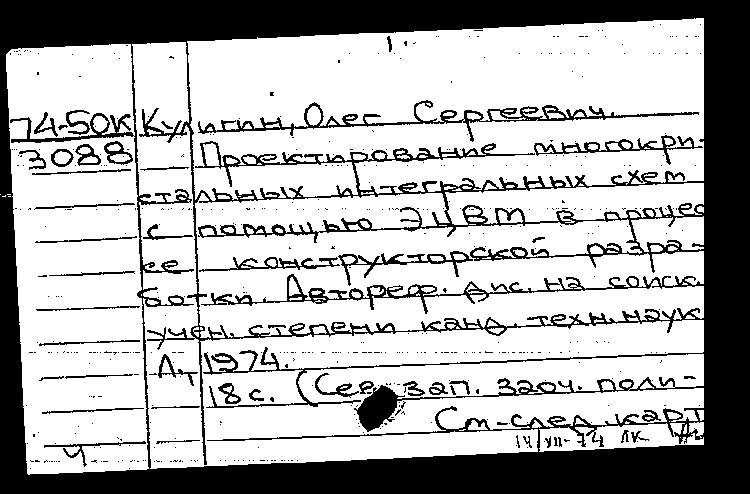 1.
74-50К Кулигин, Олег Сергеевич.
3088 Проектирование многокри-
стальных интегральных схем
с помощью ЭЦВМ в процес
ее конструкторской разра-
ботки. Автореф. дис. на соиск.
учен. степени канд. техн. наук
Л., 1974.
18 с. (Сев. зап. заоч. поли-
См-след. карт
IV/VII-74 ЛК
Ч